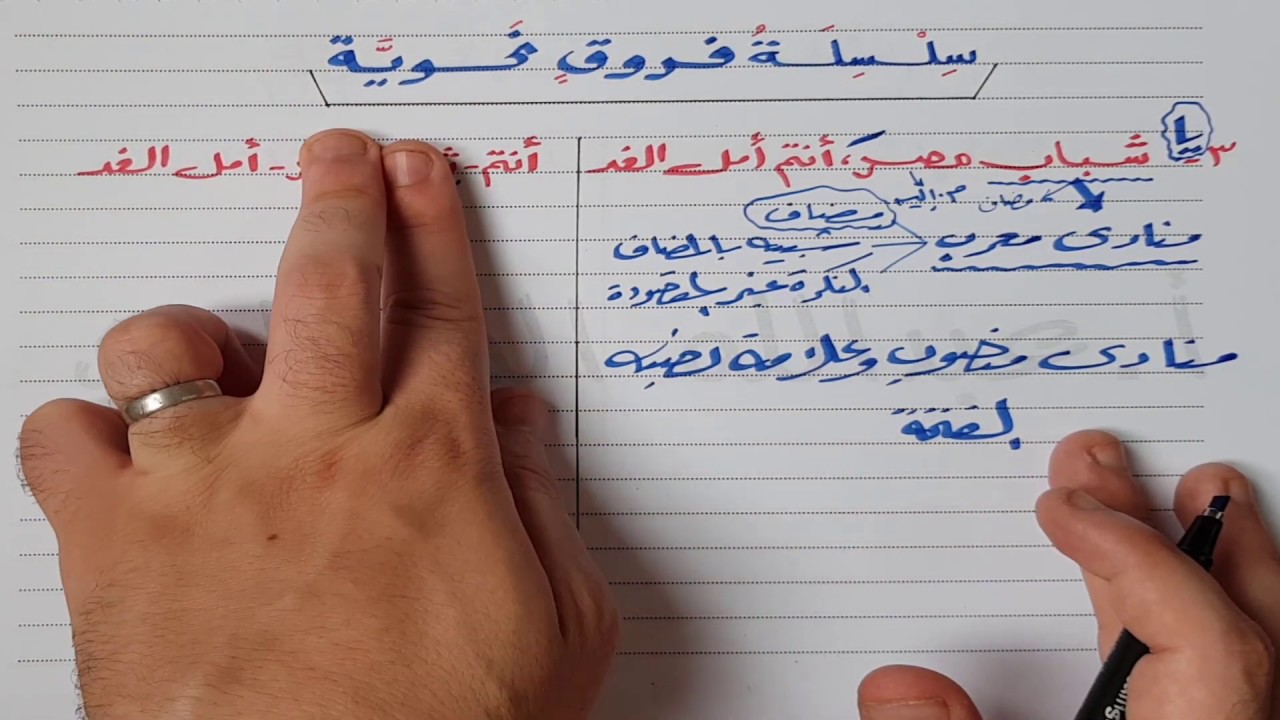 سِلْسِلَةُ فروقٍ نَحويَّة
٣ـ يا شباب مصرَ، أنتم أمل الغد
أنتم - - أمل الغد
مضاف م. إليه
منادى معرب
مضاف
شبيه بالمضاف
النكرة غير المقصودة
منادى منصوب وعلامة نصبه
الفتحة